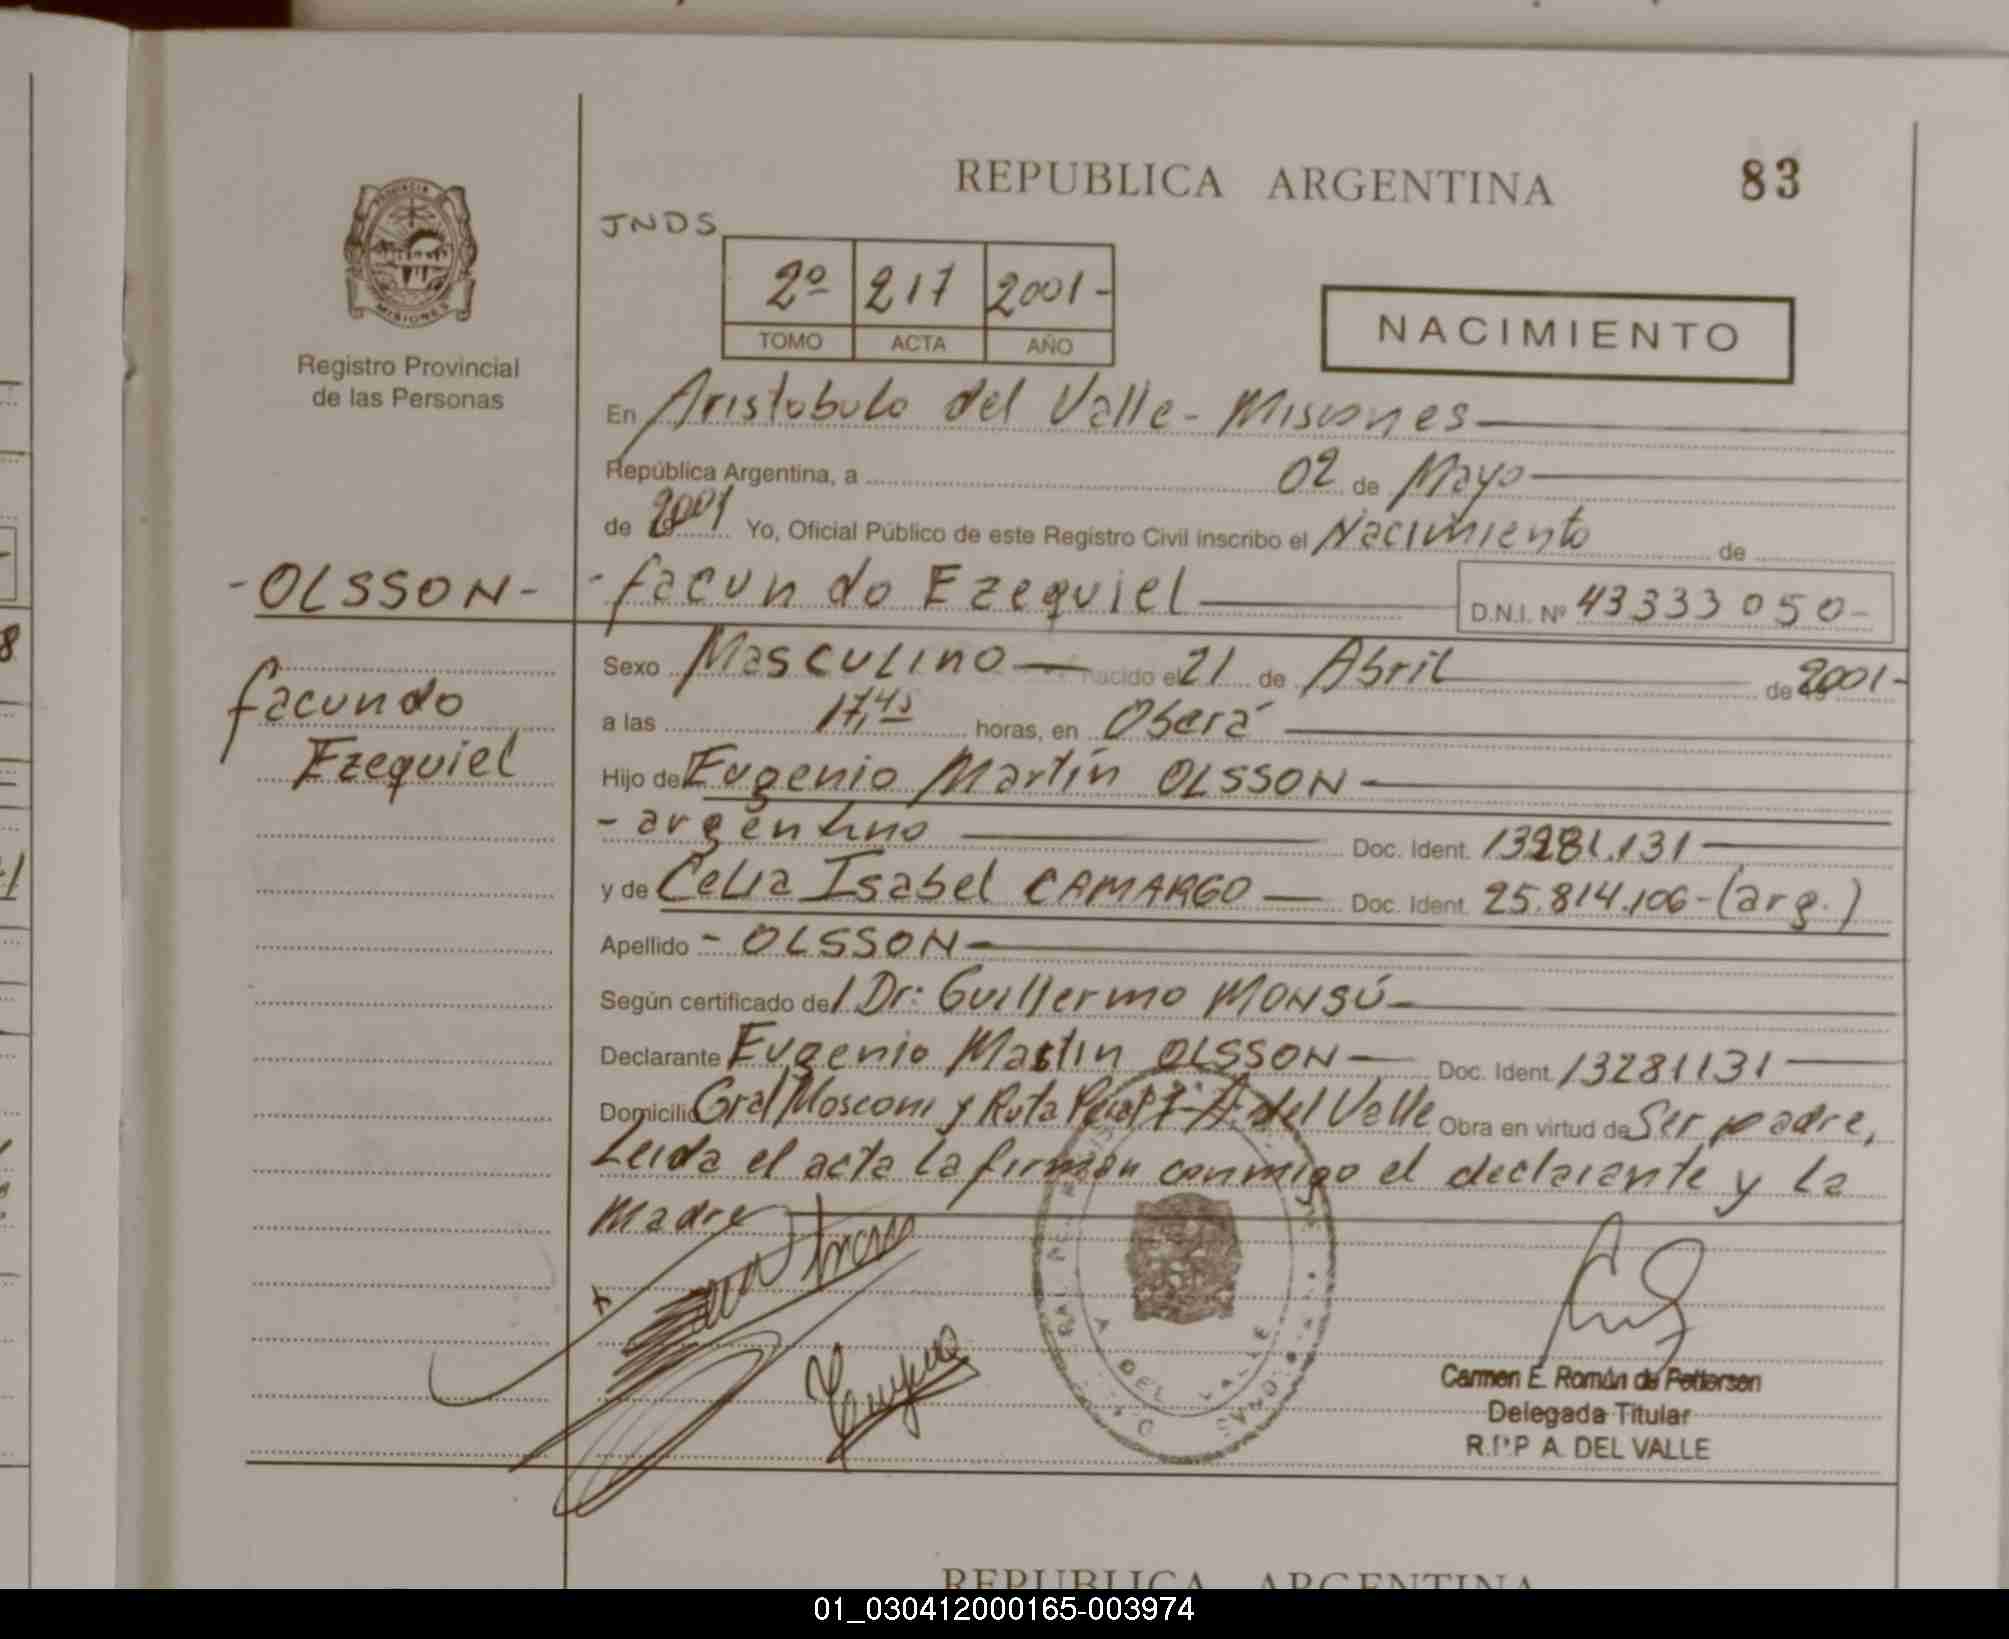 REPUBLICA ARGENTINA
83
JNDS
2º 217 2001-
TOMO ACTA AÑO
NACIMIENTO
PROVINCIA
MISIONES
Registro Provincial
de las Personas
En Aristobulo del Valle - Misiones
República Argentina, a 02 de Mayo
de 2001 Yo, Oficial Público de este Registro Civil inscribo el Nacimiento de
- OLSSON -
- facundo Ezequiel D.N.I. Nº 43333050-
facundo
Ezequiel
Sexo Masculino nacido el 21 de Abril de 2001-
a las 17,45 horas, en Oberá
Hijo de Eugenio Martín OLSSON
- argentino Doc. Ident. 13281.131
y de Celia Isabel CAMARGO Doc. Ident. 25.814.106-(arg.)
Apellido - OLSSON -
Según certificado del Dr: Guillermo MONSÚ
Declarante Eugenio Martin OLSSON Doc. Ident. 13281131
Domicilio Gral Mosconi y Ruta A. del Valle Obra en virtud de Ser padre,
Leida el acta la firman conmigo el declarante y la
Madre
DEL VALLE
Carmen E. Román de Pettersen
Delegada Titular
R.P.P A. DEL VALLE
REPUBLICA ARGENTINA
01_030412000165-003974